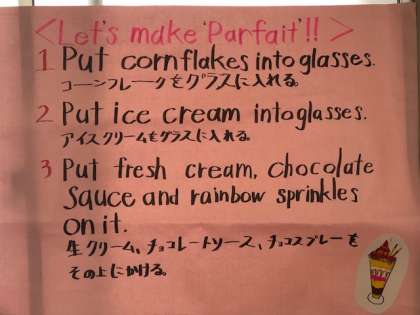 <Let's make 'Parfait'!!>
1 Put cornflakes into glasses.
コーンフレークをグラスに入れる。
2 Put ice cream into glasses.
アイスクリームをグラスに入れる。
3 Put fresh cream, chocolate
sauce and rainbow sprinkles
on it.
生クリーム、チョコレートソース、チョコスプレーを
その上にかける。